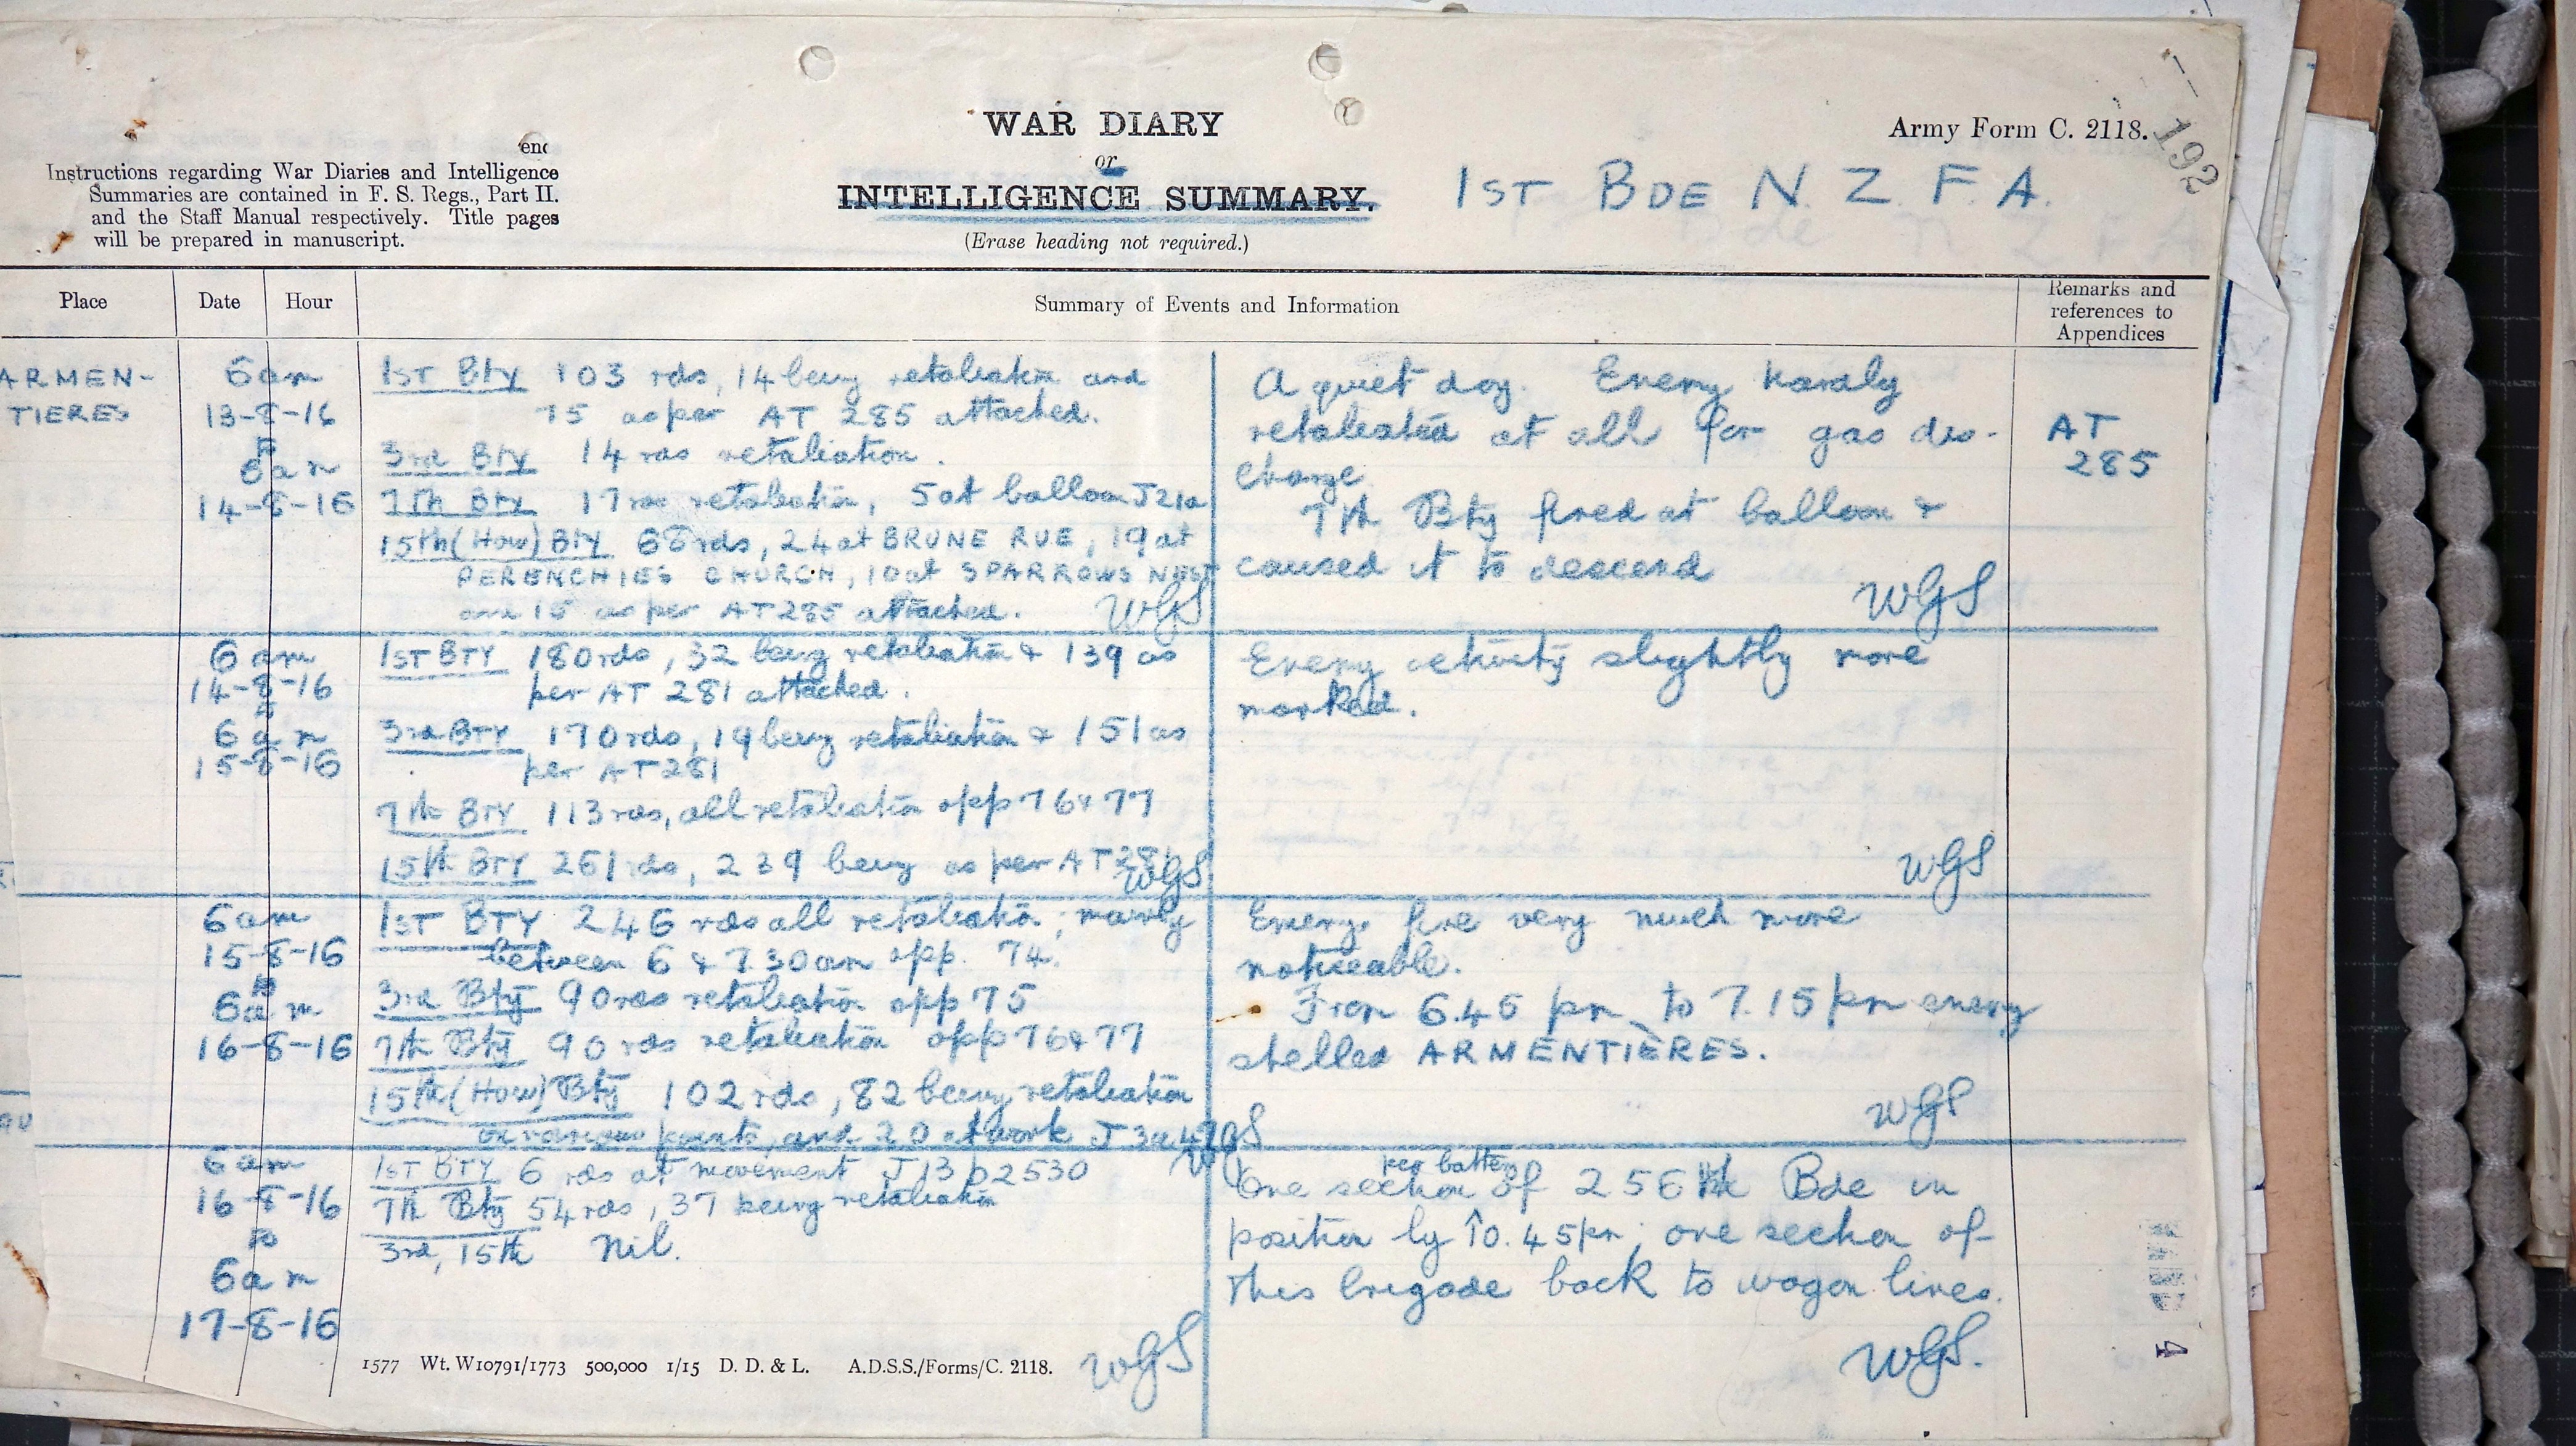 WAR DIARY
or
INTELLIGENCE SUMMARY.
(Erase heading not required.)
Army Form C. 2118.
192
1ST BDE N. Z. F. A.
Instructions regarding War Diaries and Intelligence
Summaries are contained in F. S. Regs., Part II.
and the Staff Manual respectively. Title pages
will be prepared in manuscript.
Place
Date
Hour
Summary of Events and Information
Remarks and
references to
Appendices
ARMEN-
TIERES
6am
13-8-16
to
6am
14-8-16
1ST Bty 103 rds, 14 being retaliation and
75 as per AT 285 attached.
3rd Bty 14 rds retaliation.
7th Bty 17 rds retaliation, 5 at balloon J21a
15th (How) Bty 68 rds, 24 at BRUNE RUE, 19 at
PERENCHIES CHURCH, 10 at SPARROWS NEST
and 15 as per AT 285 attached. WGS
A quiet day. Enemy hardly
retaliated at all for gas dis-
charge.
7th Bty fired at balloon &
caused it to descend
WGS
AT
285
6 am
14-8-16
to
6 am
15-8-16
1ST BTY 180 rds, 32 being retaliation & 139 as
per AT 281 attached.
3rd BTY 170 rds, 19 being retaliation & 151 as
per AT 281
7th BTY 113 rds, all retaliation opp 76 & 77
15th BTY 261 rds, 239 being as per AT 281
WGS
Enemy activity slightly more
marked.
WGS
6am
15-8-16
to
6am
16-8-16
1ST BTY 246 rds all retaliation; mainly
between 6 & 7.30am opp. 74.
3rd Bty 90 rds retaliation opp 75
7th Bty 90 rds retaliation opp 76 & 77
15th (How) Bty 102 rds, 82 being retaliation
on various points, and 20 at work J 3a 47
WGS
Enemy fire very much more
noticeable.
From 6.45 pm to 7.15 pm enemy
shelled ARMENTIÈRES.
WGS
6am
16-8-16
to
6am
17-8-16
1ST BTY 6 rds at movement J13b2530
7th Bty 54 rds, 37 being retaliation
3rd, 15th Nil.
WGS
per battery
One section of 256th Bde in
position by 10.45pm; one section of
this brigade back to wagon lines.
WGS.
1577 Wt. W10791/1773 500,000 1/15 D. D. & L. A.D.S.S./Forms/C. 2118.
4